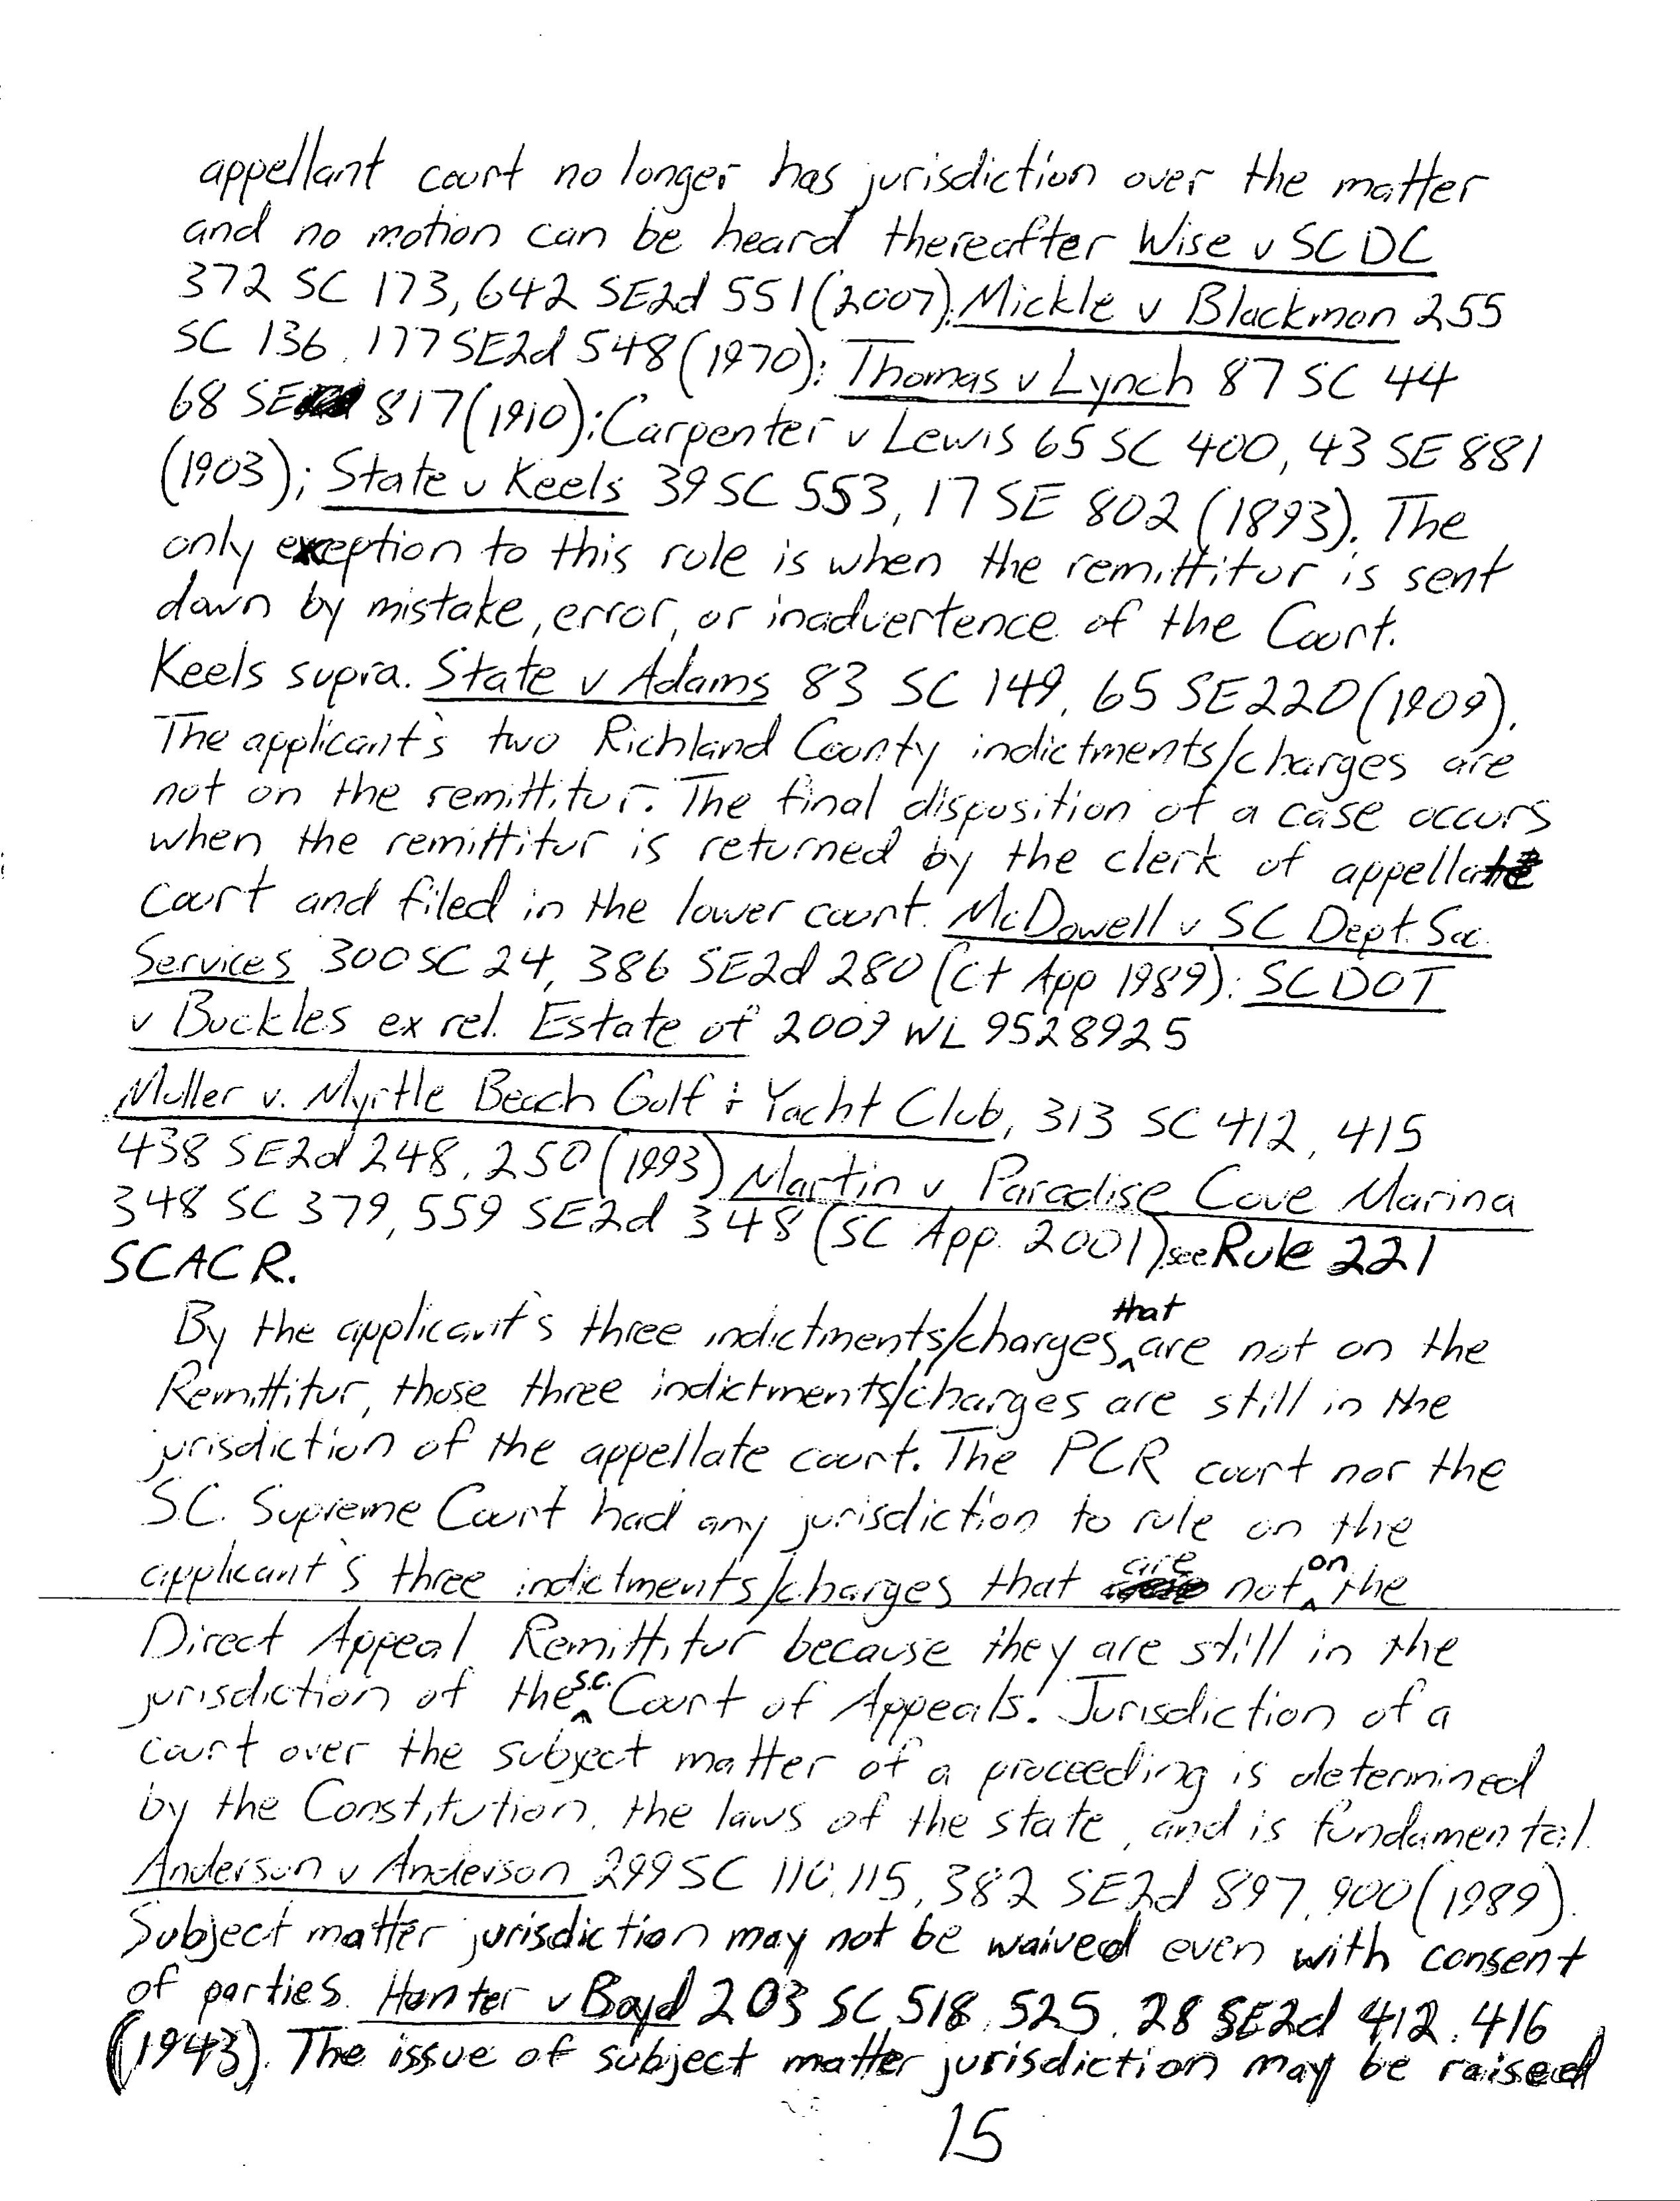 appellant court no longer has jurisdiction over the matter
and no motion can be heard thereafter Wise v SCDC
372 SC 173, 642 SE2d 551 (2007); Mickle v Blackmon 255
SC 136, 177 SE2d 548 (1970); Thomas v Lynch 87 SC 44
68 SE 817 (1910); Carpenter v Lewis 65 SC 400, 43 SE 881
(1903); State v Keels 39 SC 553, 17 SE 802 (1893). The
only exception to this rule is when the remittitur is sent
down by mistake, error, or inadvertence of the Court.
Keels supra. State v Adams 83 SC 149, 65 SE 220 (1909).
The applicant's two Richland County indictments/charges are
not on the remittitur. The final disposition of a case occurs
when the remittitur is returned by the clerk of appellate
court and filed in the lower court. McDowell v SC Dept. Soc.
Services 300 SC 24, 386 SE2d 280 (Ct App 1989); SCDOT
v Buckles ex rel. Estate of 2009 WL 9528925
Muller v. Myrtle Beach Golf + Yacht Club, 313 SC 412, 415
438 SE2d 248, 250 (1993) Martin v Paradise Cove Marina
348 SC 379, 559 SE2d 348 (SC App. 2001) see Rule 221
SCACR.
By the applicant's three indictments/charges that are not on the
Remittitur, those three indictments/charges are still in the
jurisdiction of the appellate court. The PCR court nor the
S.C. Supreme Court had any jurisdiction to rule on the
applicant's three indictments/charges that are not on the
Direct Appeal Remittitur because they are still in the
jurisdiction of the S.C. Court of Appeals. Jurisdiction of a
court over the subject matter of a proceeding is determined
by the Constitution, the laws of the state, and is fundamental.
Anderson v Anderson 299 SC 110, 115, 382 SE2d 897, 900 (1989).
Subject matter jurisdiction may not be waived even with consent
of parties. Hunter v Boyd 203 SC 518, 525, 28 SE2d 412, 416
(1943). The issue of subject matter jurisdiction may be raised
15